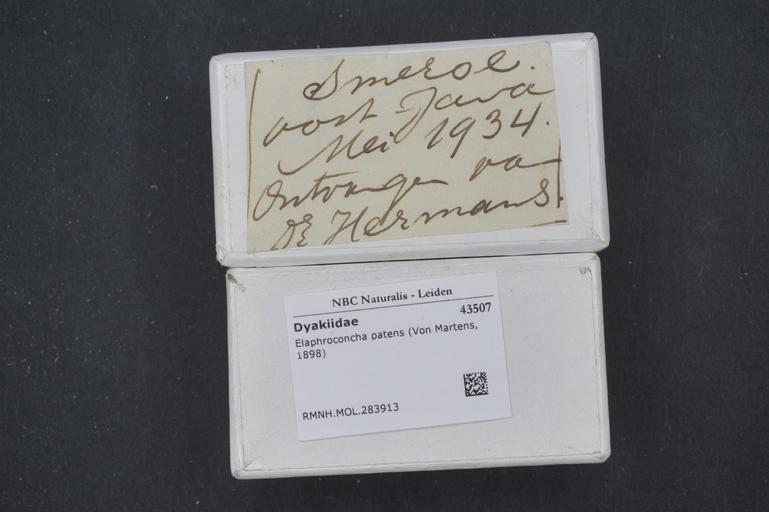 Smeroe.
oost Java
Mei 1934.
Ontvangen va
Dr Hermans.
NBC Naturalis - Leiden
43507
Dyakiidae
Elaphroconcha patens (Von Martens,
1898)
RMNH.MOL.283913